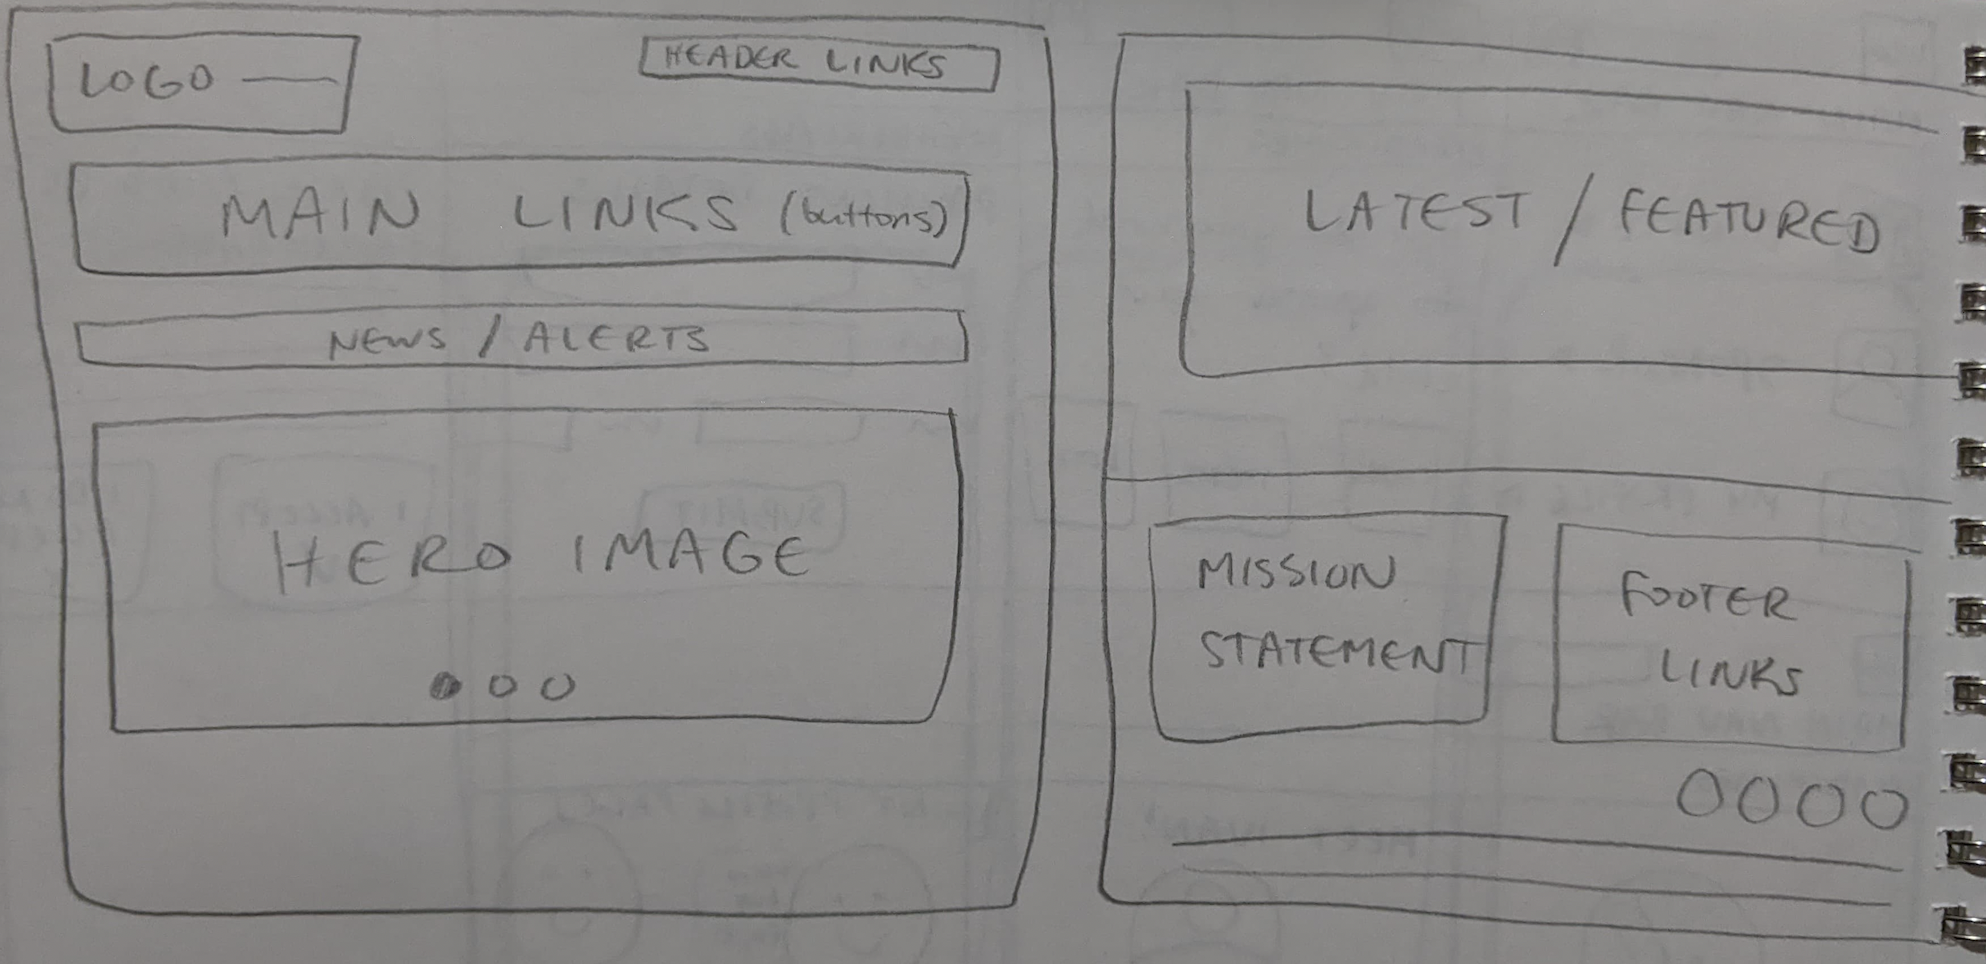 LOGO
HEADER LINKS
MAIN LINKS (buttons)
NEWS / ALERTS
HERO IMAGE
LATEST / FEATURED
MISSION
STATEMENT
FOOTER
LINKS
SUBMIT
I ACCEPT